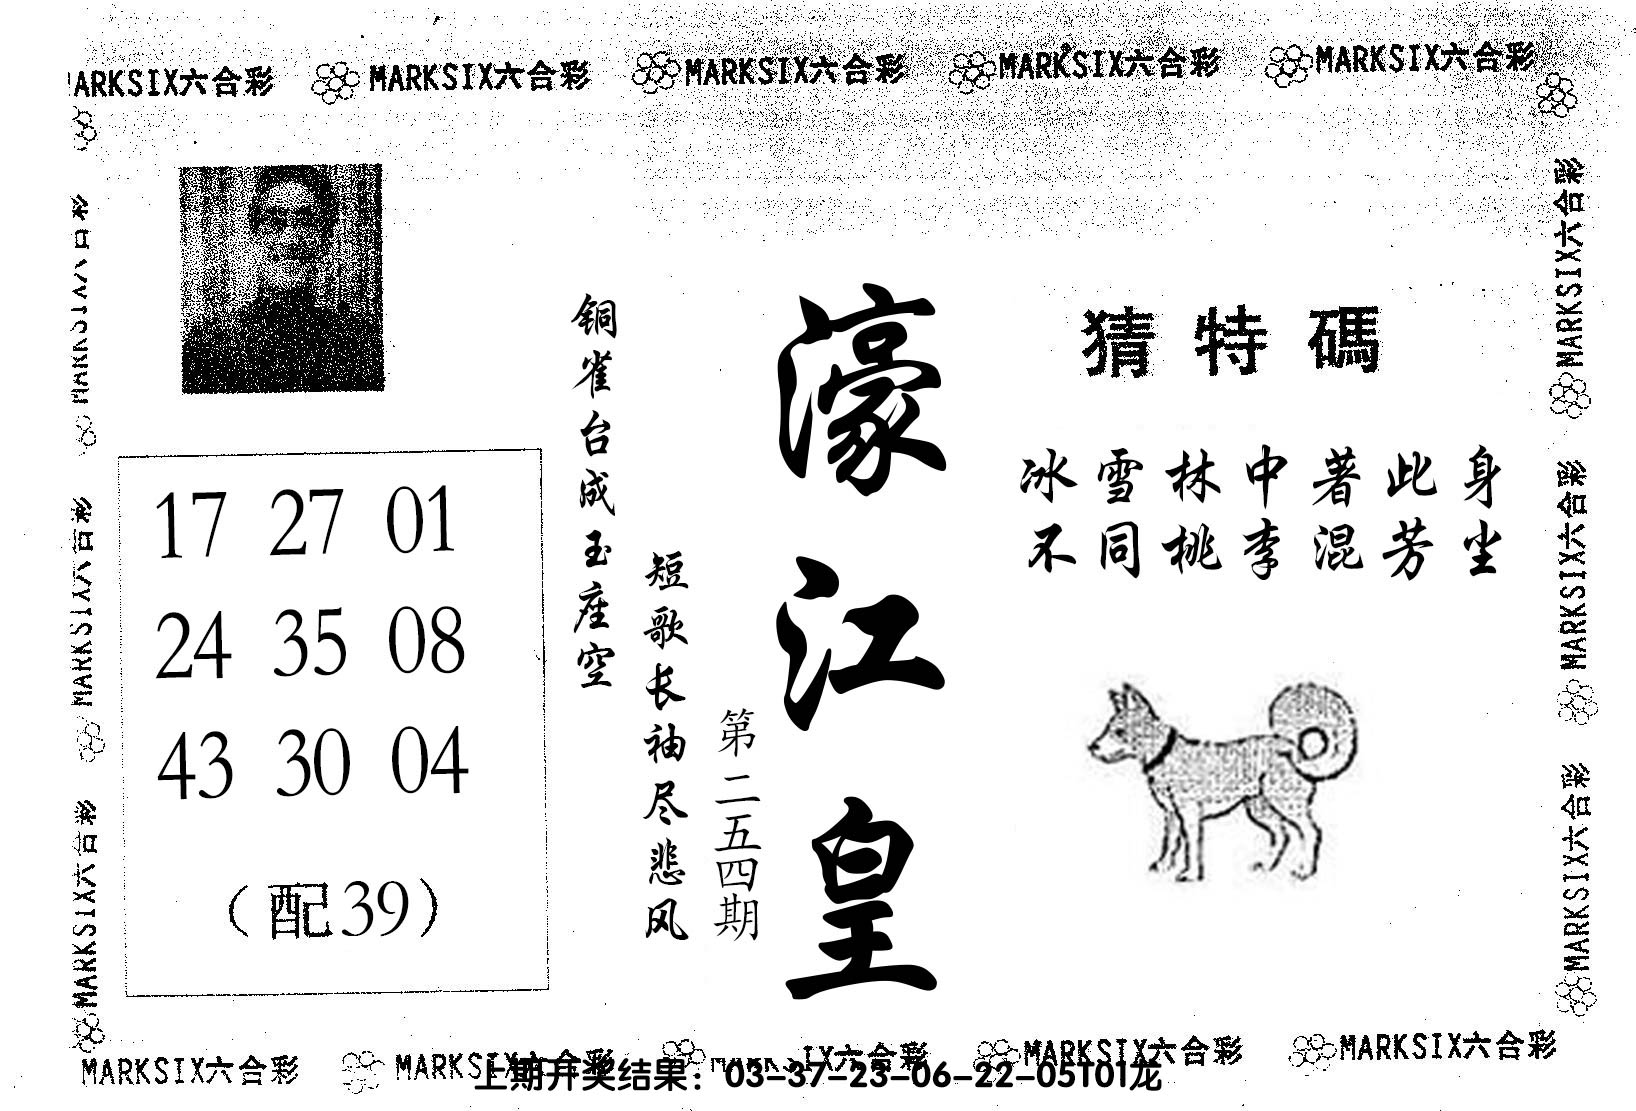 MARKSIX六合彩 MARKSIX六合彩 MARKSIX六合彩 MARKSIX六合彩 MARKSIX六合彩
MARKSIX六合彩
MARKSIX六合彩
MARKSIX六合彩
17 27 01
24 35 08
43 30 04
（配39）
铜雀台成玉座空
短歌长袖尽悲风
第二五四期
濠江皇
猜特碼
冰雪林中著此身
不同桃李混芳尘
MARKSIX六合彩
MARKSIX六合彩
MARKSIX六合彩
MARKSIX六合彩 MARKSIX六合彩 MARKSIX六合彩 MARKSIX六合彩 MARKSIX六合彩
上期开奖结果：03-37-23-06-22-05T01龙